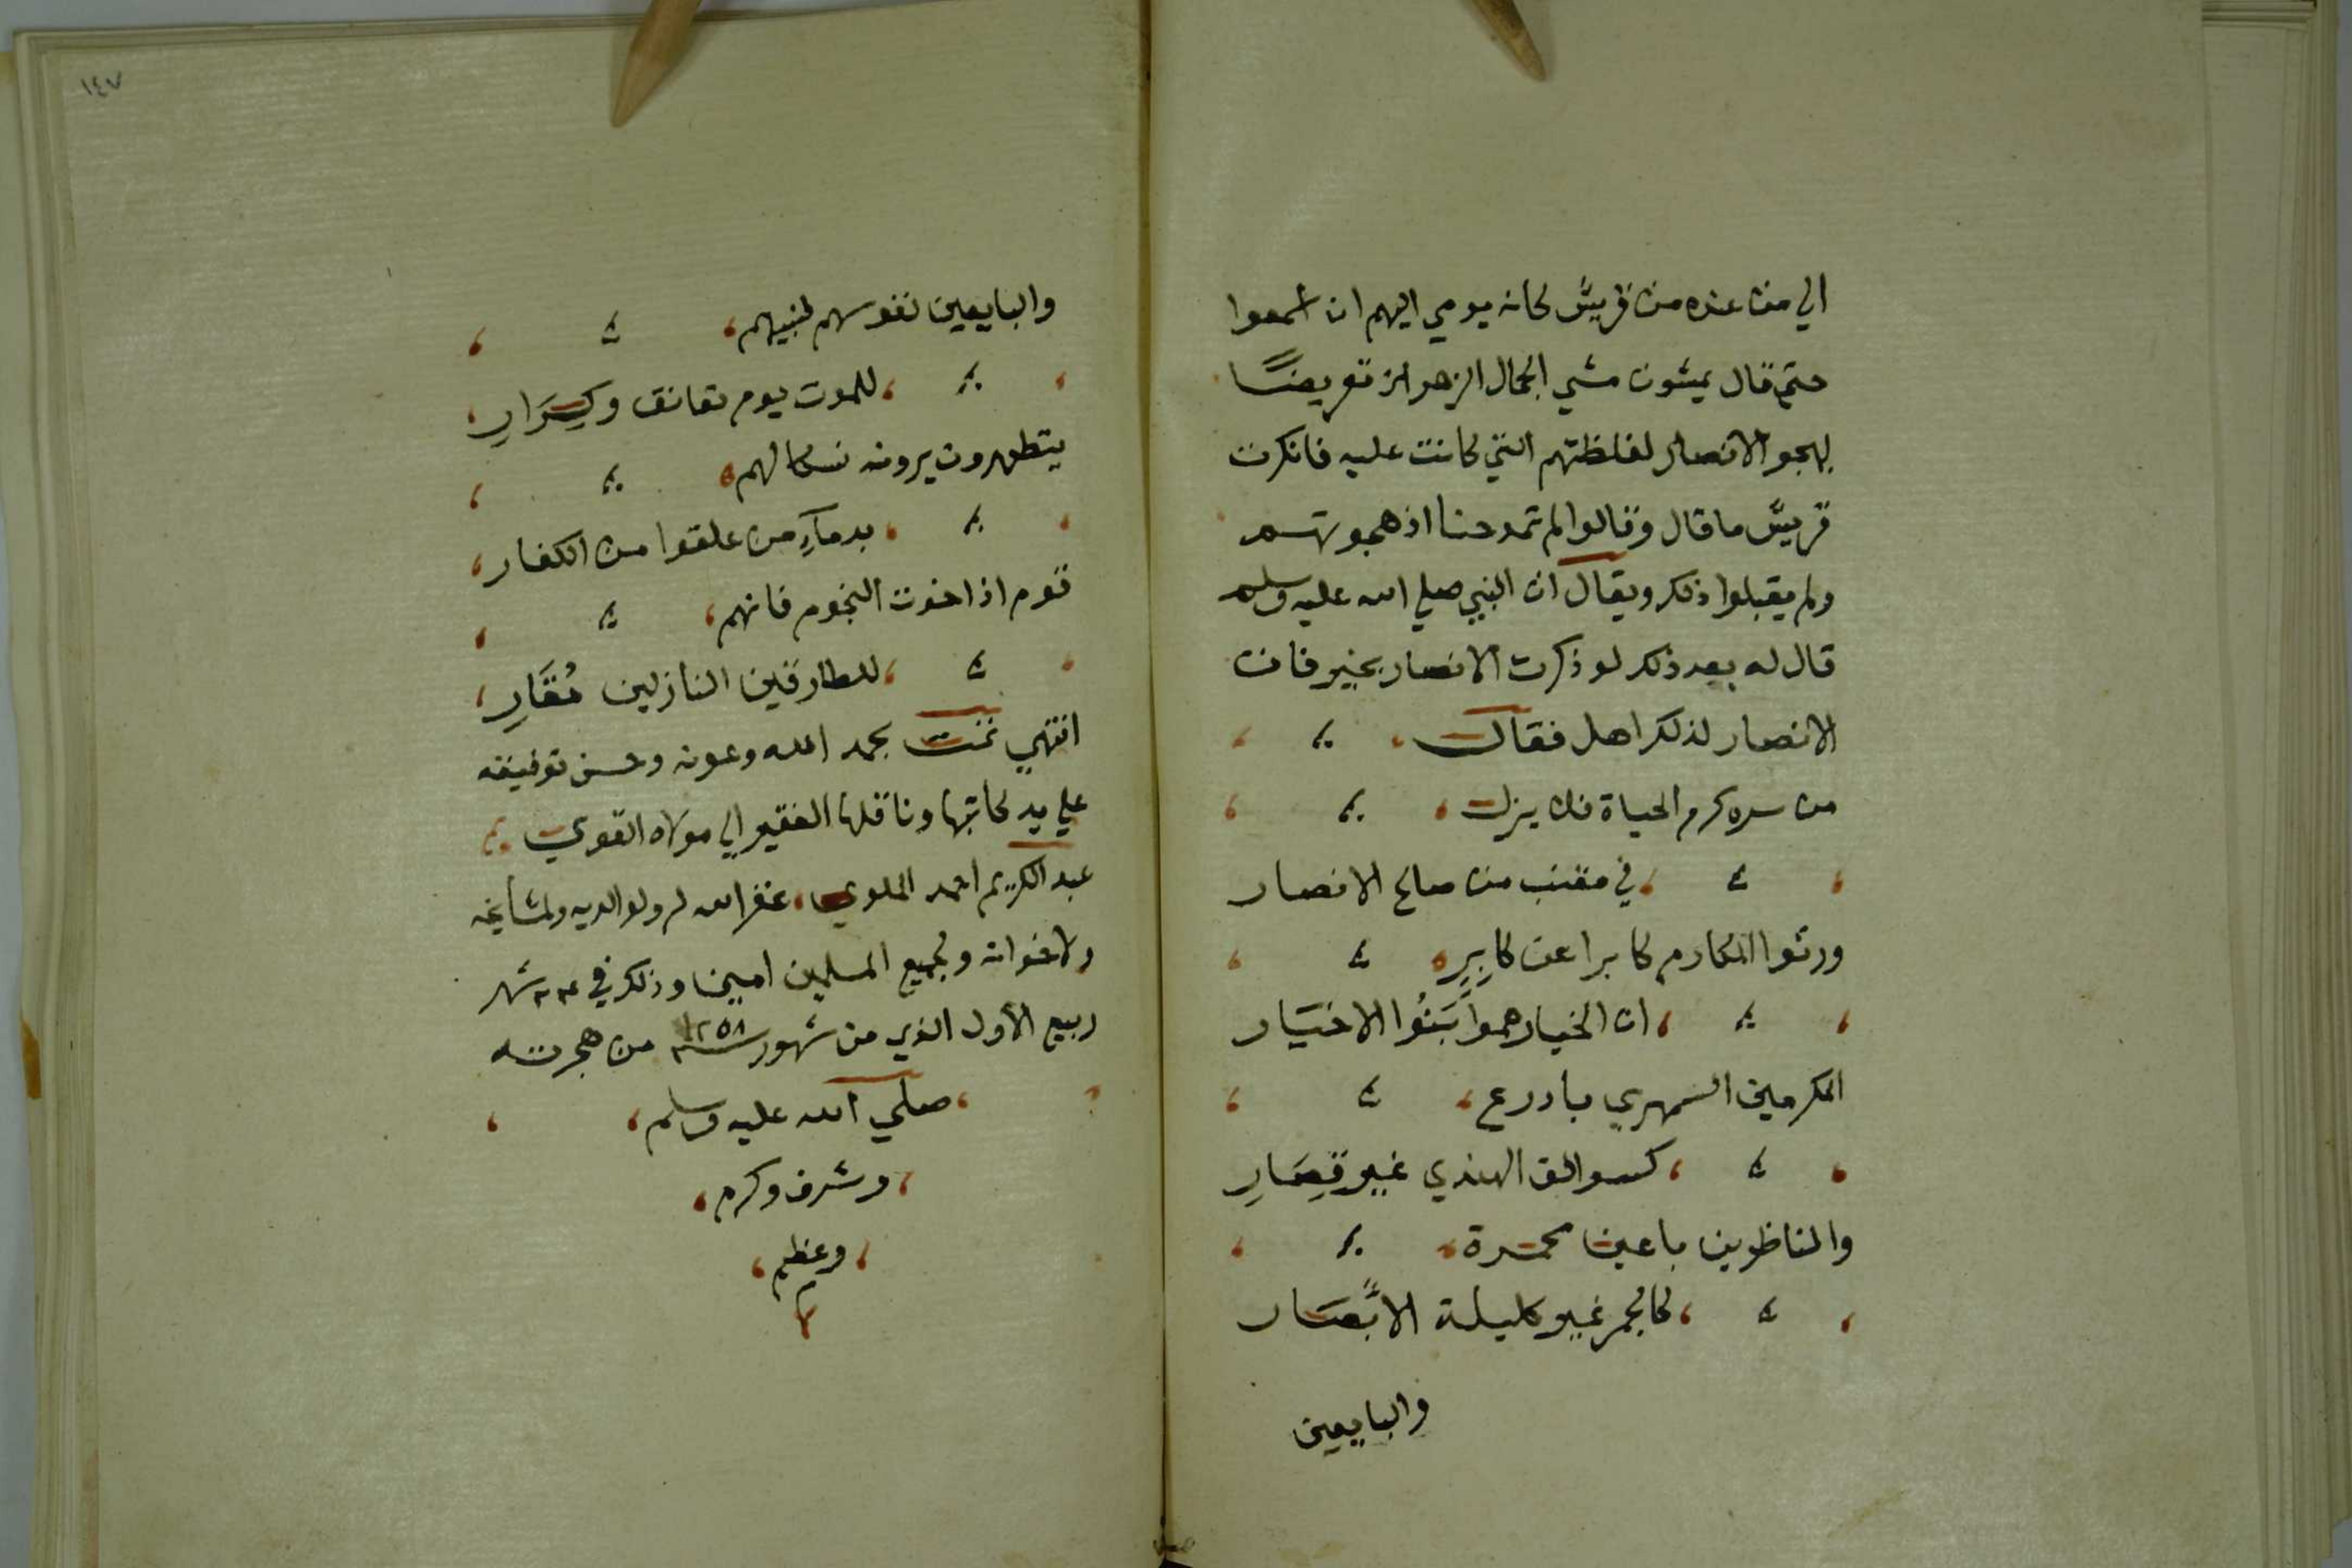 الي من عنده من قريش كانه يومي اليهم ان اسمعوا
حتي قال يمشون مشي الجمال الزهر الخ تعريضًا
بهجو الانصار لغلظتهم التي كانت عليه فانكرت
قريش ما قال وقالوا لم تمدحنا اذ هجوتهم
ولم يقبلوا ذلك ويقال ان النبي صلي الله عليه وسلم
قال له بعد ذلك لو ذكرت الانصار بخير فان
الانصار لذلك اهل فقال
من سره كرم الحياة فلا يزل
في مقنب من صالح الانصار
ورثوا المكارم كابرا عن كابِرِ
ان الخيار هموا بَنُوا الاخيَار
المكرمين السمهري بادرع
كسوالق الهندي غير قِصَارِ
والناظرين باعين محمرة
كالجمر غير كليلة الابْصَار
والبايعين
١٤٧
والبايعين نفوسهم لنبيهم
للموت يوم تعانق وكِرَارِ
يتطهرون يرونه نسكا لهم
بدمآءِ من علقوا من الكفار
قوم اذا خوت النجوم فانهم
للطارقين النازلين مُقَارِ
انتهي تمت بحمد الله وعونه وحسن توفيقه
علي يد كاتبها وناقلها الفقير الي مولاه القوي
عبد الكريم احمد الملوي غفر الله له ولوالديه ولمشايخه
ولاخوانه ولجميع المسلمين امين وذلك في شهر
ربيع الأول الذي من شهور سنة ١٢٥٨ من هجرته
صلي الله عليه وسلم
وشرف وكرم
وعظم
م